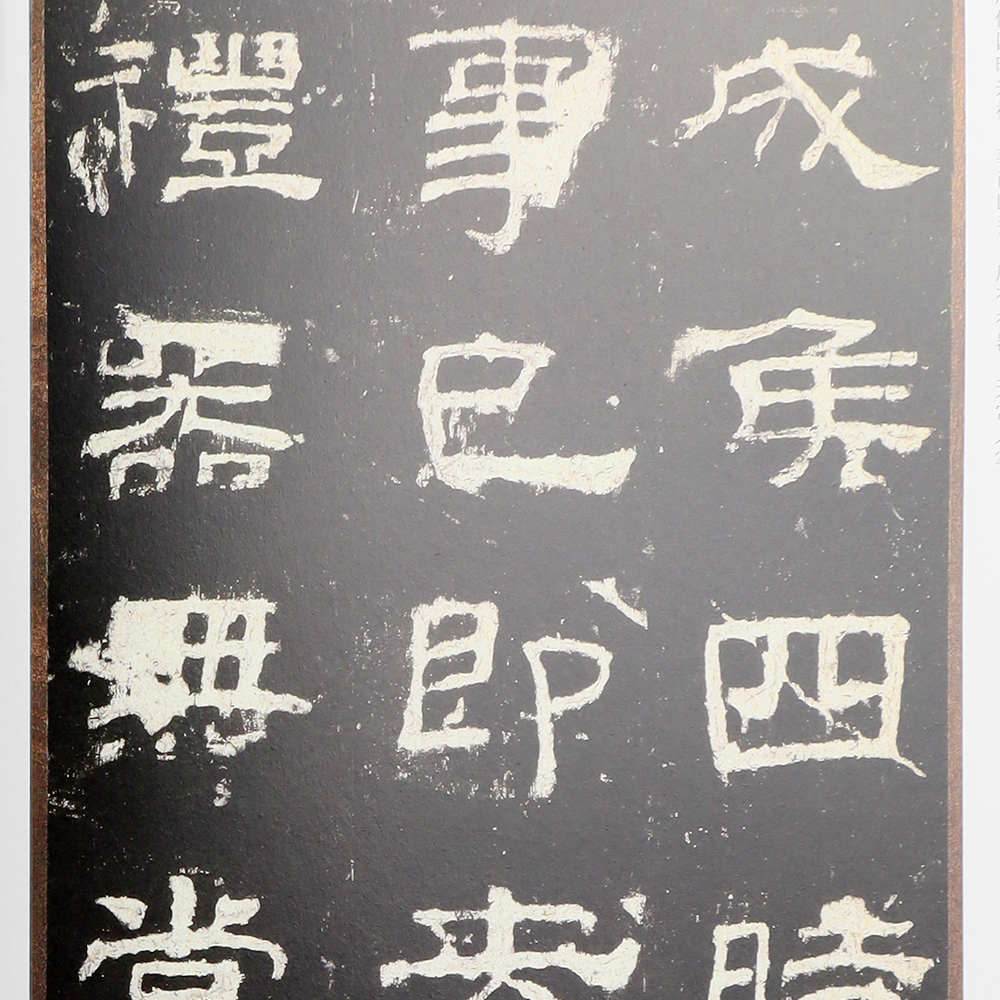 成侯四時
事已即去
禮器無常